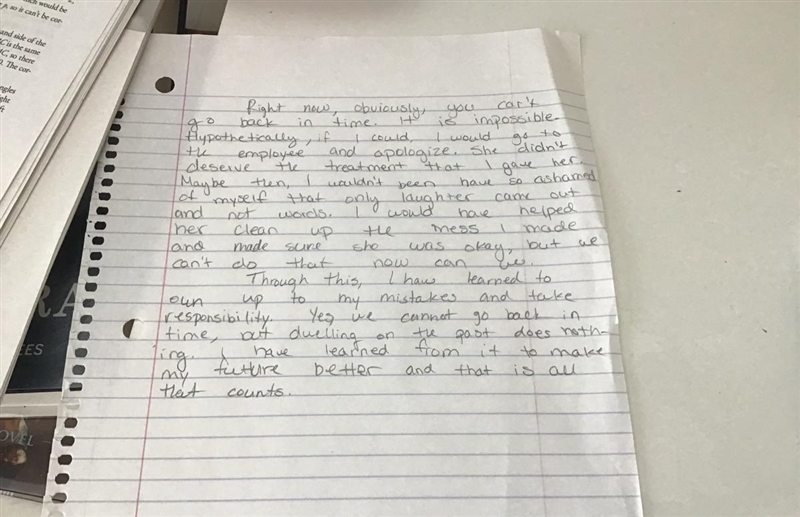 ch would be
so it can't be cor-
and side of the
C is the same
C, so there
The cor-
ngles
ight
ft
Right now, obviously, you can't
go back in time. It is impossible.
Hypothetically, if I could, I would go to
the employee and apologize. She didn't
deserve the treatment that I gave her.
Maybe then, I wouldn't been have so ashamed
of myself that only laughter came out
and not words. I would have helped
her clean up the mess I made
and made sure she was okay, but we
can't do that now can we.
Through this, I have learned to
own up to my mistakes and take
responsibility. Yes, we cannot go back in
time, but dwelling on the past does noth-
ing. I have learned from it to make
my future better and that is all
that counts.
RA
EES
OVEL